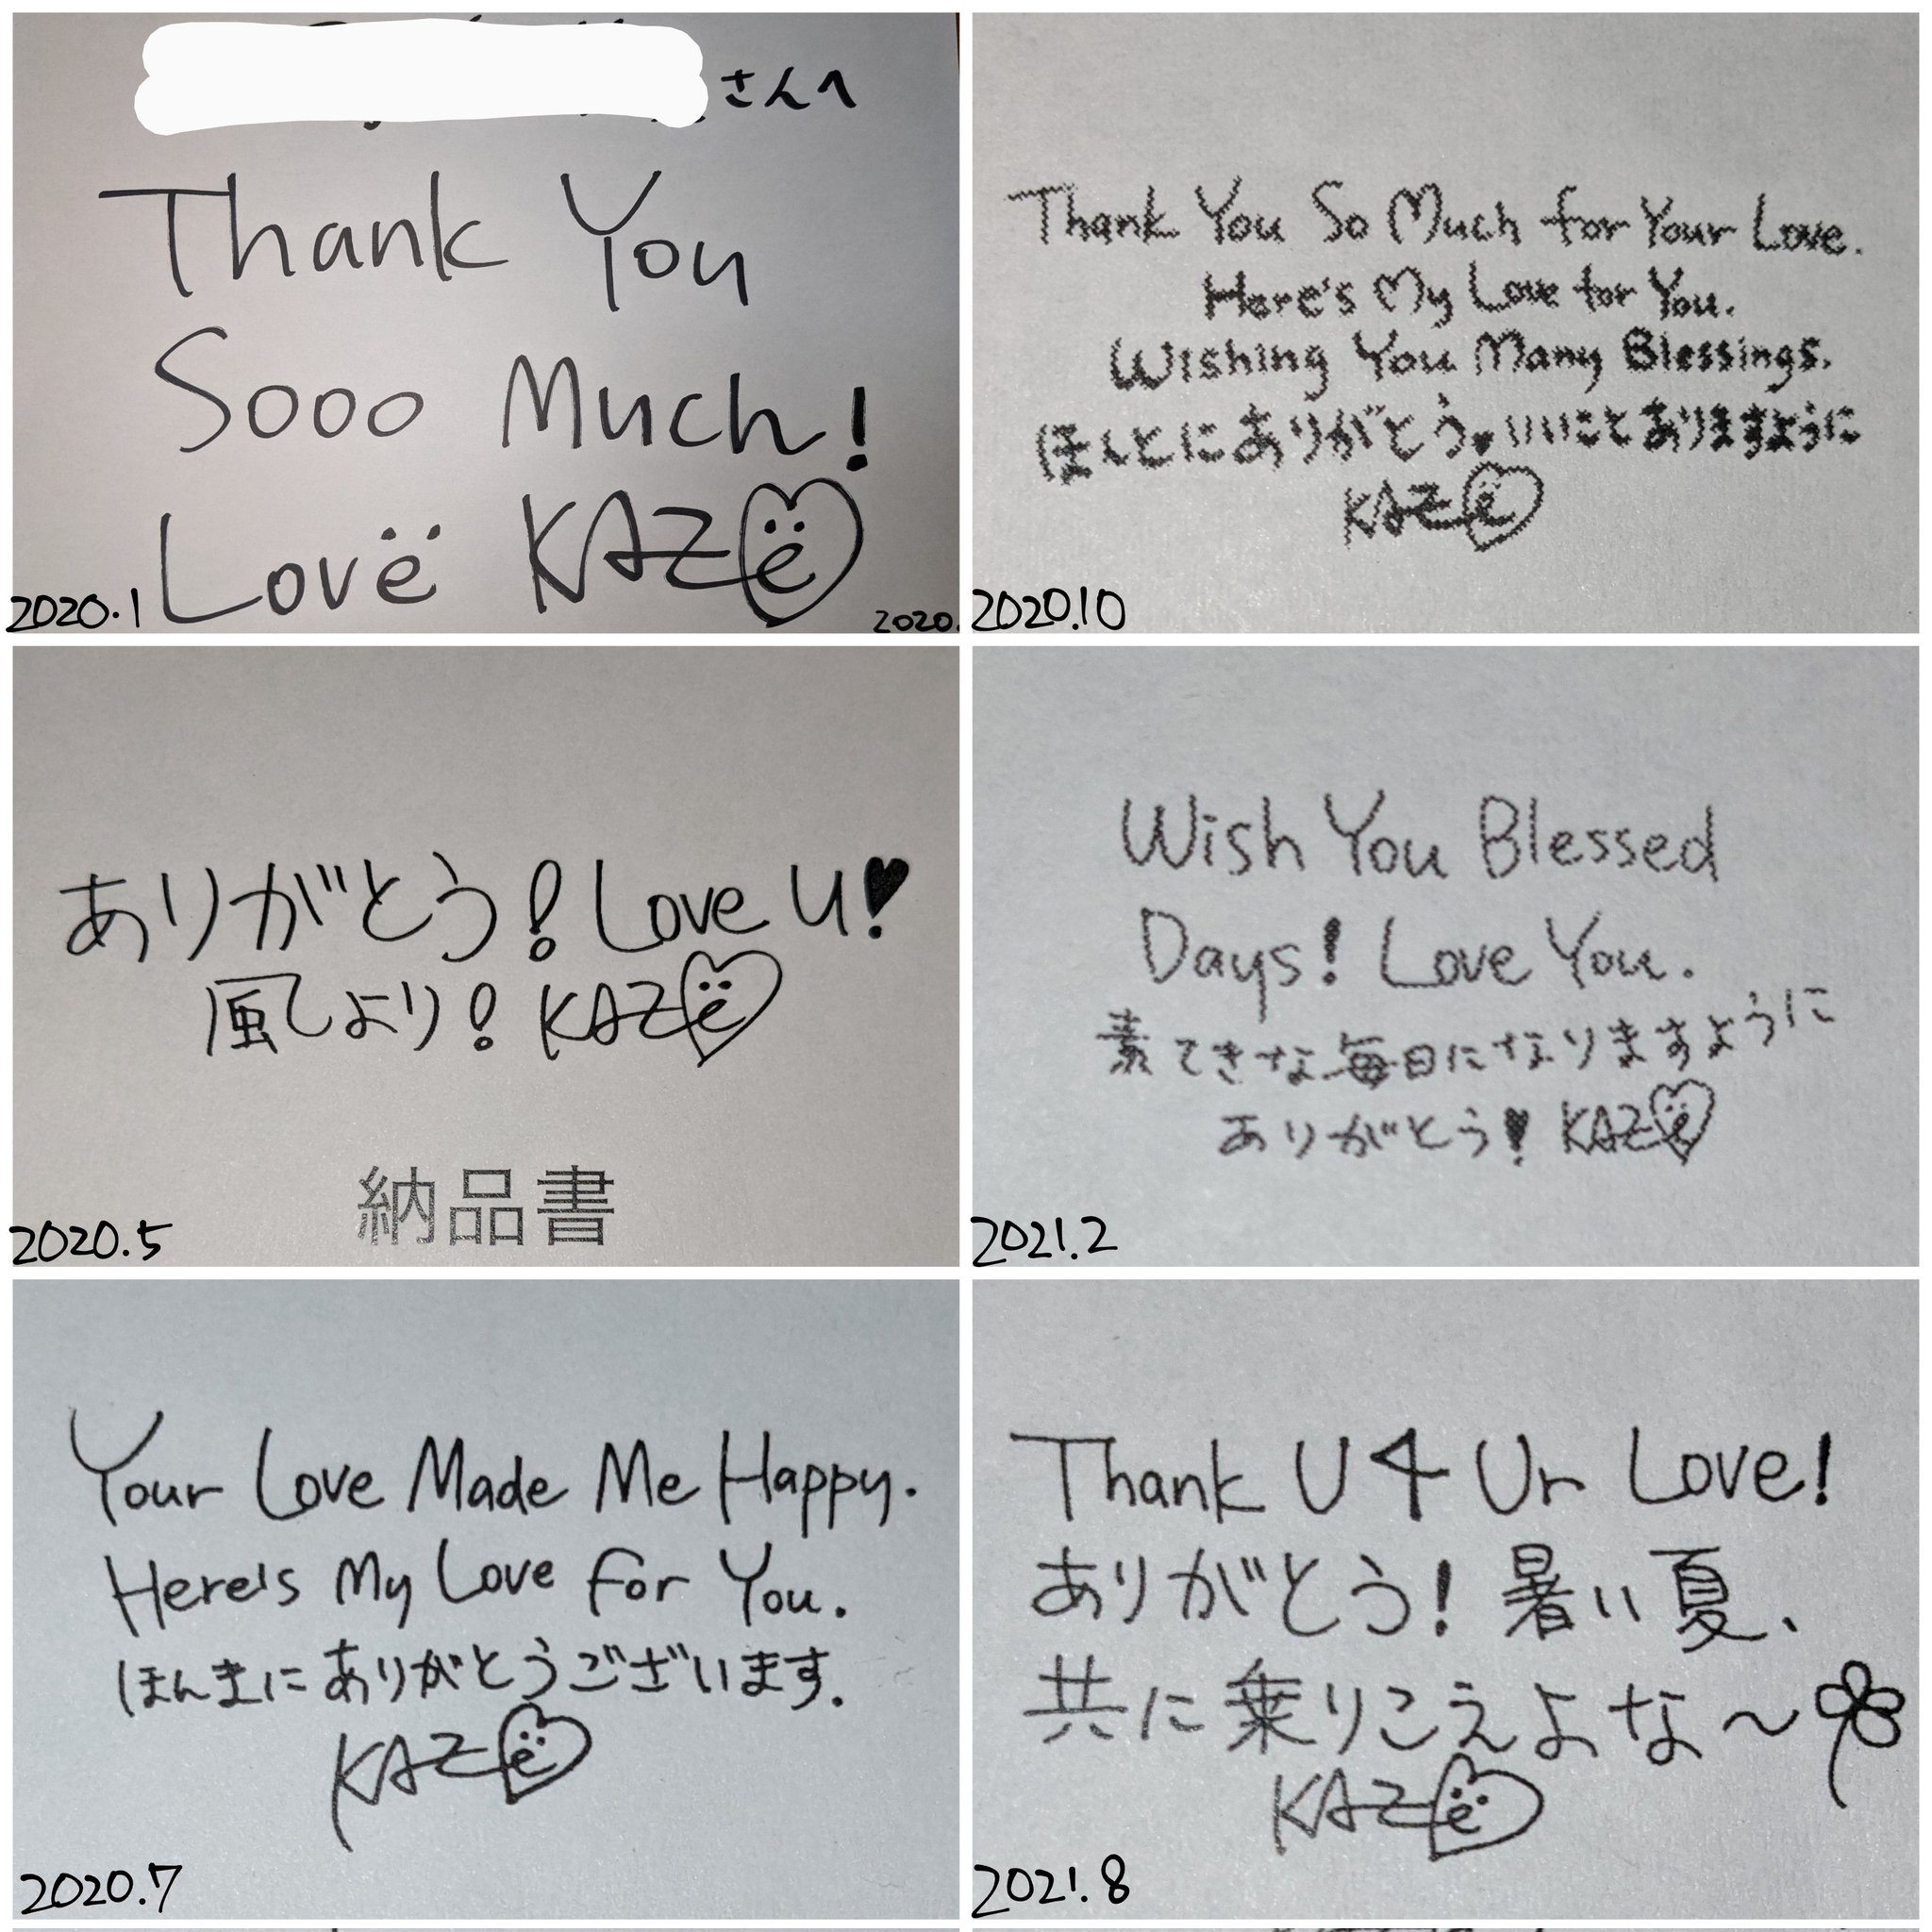 さんへ
Thank You
Sooo Much!
Lovë KAZë
2020.1
2020.
Thank You So Much for Your Love.
Here's My Love for You.
Wishing You Many Blessings.
ほんとにありがとう♥いいことありますように
KAZë
2020.10
ありがとう!Love U♥
風しより!KAZë
納品書
2020.5
Wish You Blessed
Days! Love You.
素てきな毎日になりますように
ありがとう!KAZë
2021.2
Your Love Made Me Happy.
Here's My Love for You.
ほんまにありがとうございます.
KAZë
2020.7
Thank U 4 Ur Love!
ありがとう!暑い夏、
共に乗りこえよな〜
KAZë
2021.8